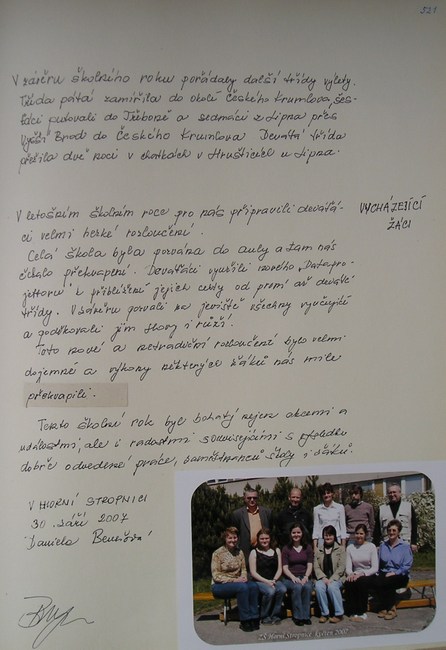 521
V závěru školního roku pořádaly další třídy výlety.
Třída pátá zamířila do okolí Českého Krumlova, šes-
ťáci putovali do Třeboně a sedmáci z Lipna přes
Vyšší Brod do Českého Krumlova. Devátá třída
prožila dvě noci v chatkách v Hrušticích u Lipna.
V letošním školním roce pro nás připravili deváťá-
ci velmi hezké rozloučení.
VYCHÁZEJÍCÍ
ŽÁCI
Celá škola byla pozvána do auly a tam nás
čekalo překvapení. Deváťáci využili nového „Datapro-
jektoru" k přiblížení jejich cesty od první až deváté
třídy. V závěru pozvali na jeviště všechny vyučující
a poděkovali jim slovy i růží.
Toto nové a netradiční rozloučení bylo velmi
dojemné a výkony některých žáků nás mile
překvapili.
Tento školní rok byl bohatý nejen akcemi a
událostmi, ale i radostmi souvisejícími s
dobře odvedené práce, zaměstnanců školy i žáků.
V HORNÍ STROPNICI
30. září 2007
Daniela
ZŠ Horní Stropnice Květen 2007